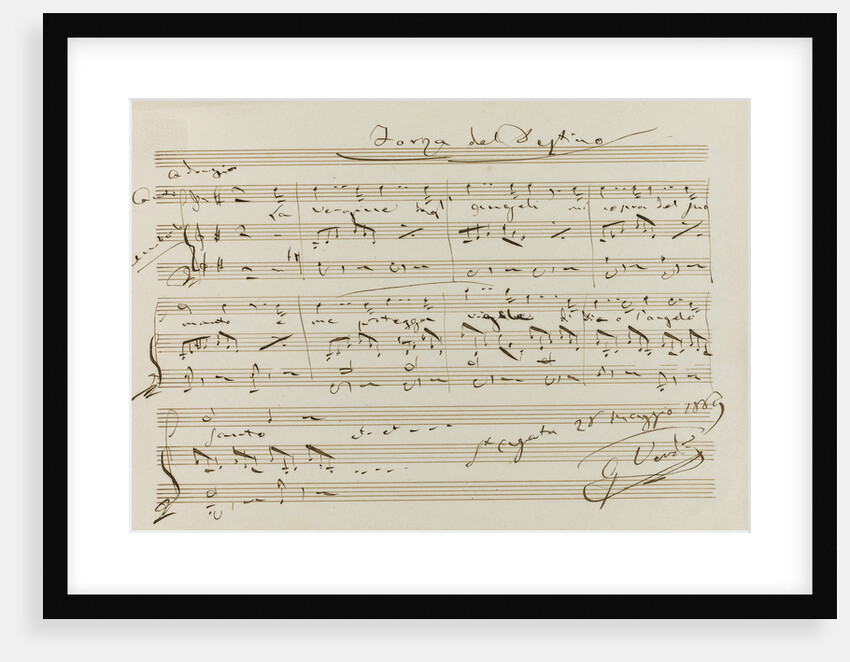 Forza del Destino
Adagio
Canto
La vergine degl' angeli mi copra del suo
manto e me protegga vigile di Dio l'angelo
santo etc etc
St Agata 28 Maggio 1869
G Verdi